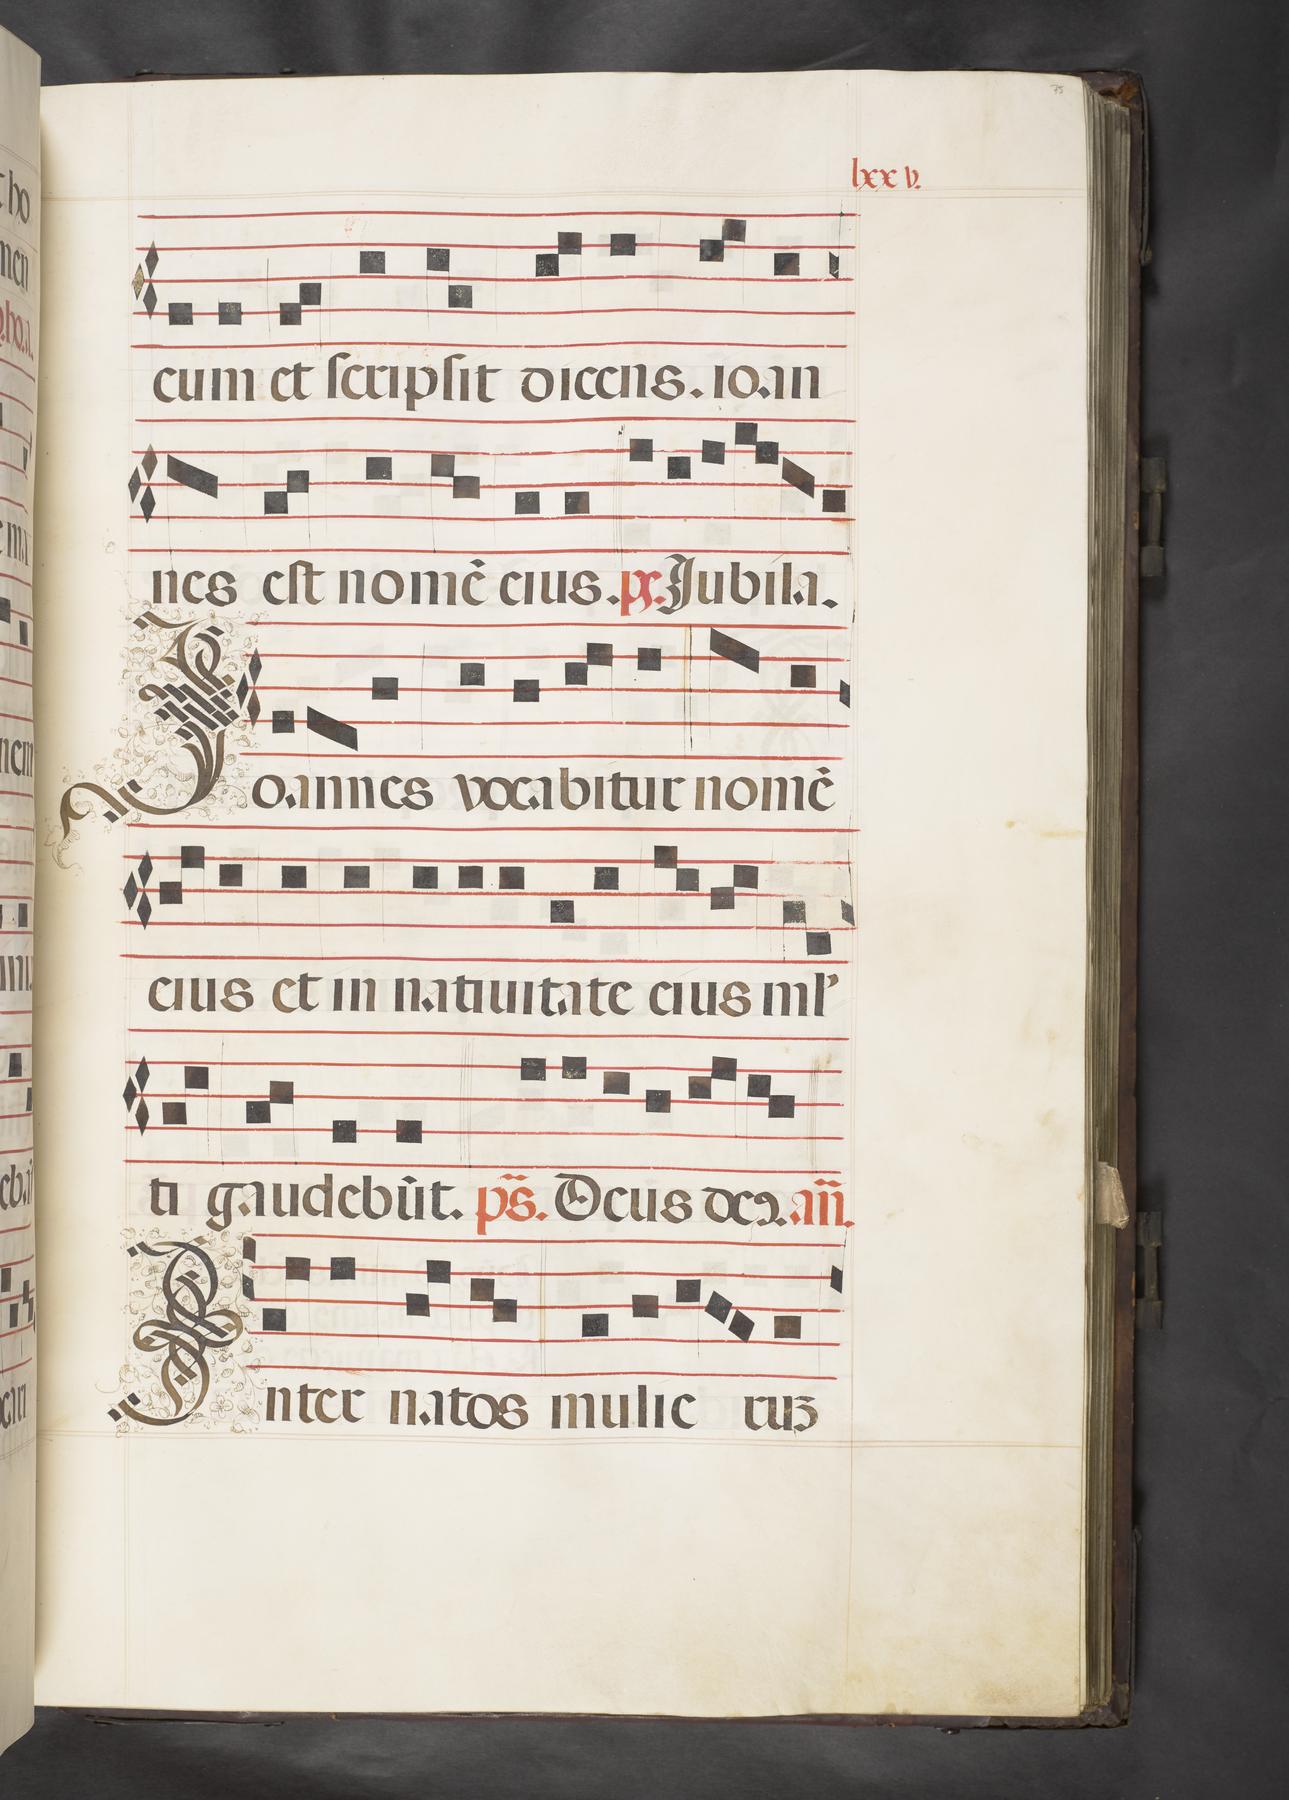 75
lxxv.
cum et scripsit dicens. Ioan
nes est nomē eius. ps. Jubila.
Ioannes vocabitur nomē
eius et in natiuitate eius ml'
ti gaudebūt. ps. Deus deꝰ. añ.
Inter natos mulie ruꝫ